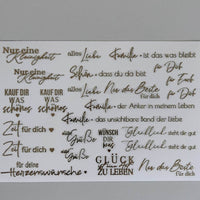 Nur eine
Kleinigkeit
alles Liebe
Familie ist das was bleibt
Nur eine
Kleinigkeit
Schön, dass du da bist
für Dich
für Euch
für Dich
KAUF DIR
WAS
schönes
KAUF DIR
WAS
schönes
alles Liebe
Nur das Beste
für dich
Familie - der Anker in meinem Leben
Familie - das unsichtbare Band der Liebe
Zeit für dich
Zeit für dich
Grüße
Grüße
WÜNSCH
DIR
was
Glücklich steht dir gut
Glücklich steht dir gut
für deine
Herzenswünsche
GLÜCK
ZU LEBEN
Nur das Beste
für dich